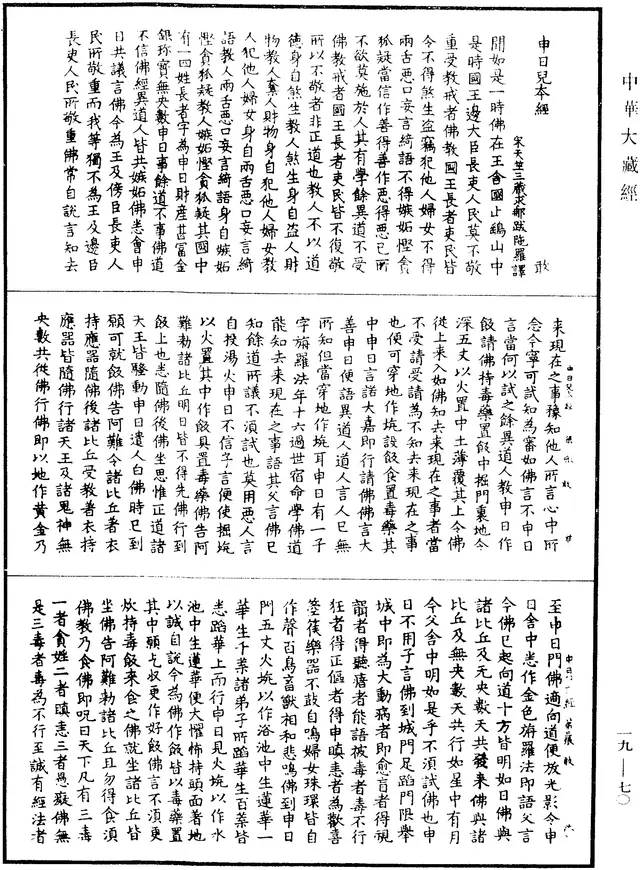 中華大藏經
申日兒本經　敢
宋天竺三藏求那跋陁羅譯
聞如是一時佛在王舍國止鷂山中
是時國王邊大臣長者人民莫不敬
重受教戒者佛教國王長者吏民皆
令不得煞生盜竊犯他人婦女不得
兩舌惡口妄言綺語不得嫉妬慳貪
狐疑當信作善得善作惡得惡已所
不欲莫施於人其有學餘異道不受
佛教戒者國王長者吏民皆不復敬
所以不敬者非正道也教人不以道
德身自煞生教人煞生身自盜人財
物教人棄人財物身自犯他人婦女教
人犯他人婦女身自兩舌惡口妄言綺
語教人兩舌惡口妄言綺語身自嫉妬
慳貪狐疑教人嫉妬慳貪狐疑其國中
有一四姓長者字為申日財產甚富金
銀珎寶無央數申日事餘道不事佛道
不信佛經異道人皆共嫉妬佛悉會申
日共議言佛今為王及傍臣長吏人
民所敬重而我等獨不為王及邊臣
長吏人民所敬重佛常自說言知去
來現在之事豫知他人所言心中所
念今寧可試知為審如佛言不申日
言當何以試之餘異道人教申日作
飯請佛持毒藥置飯中掘門裏地令
深五丈以火置中土薄覆其上令佛
從上來入如佛知去來現在之事者當
不受請受請為不知去來現在之事
也便可穿地作坑設飯食置毒藥其
中申日言諾大嘉即行請佛佛言大
善申日便語異道人道人言人已無
所知但當穿地作坑耳申日有一子
字旃羅法年十六過世宿命學佛道
能知去來現在之事語其父言佛已
知餘道所議不須試也莫用惡人言
自投湯火申日不信子言便使掘坑
以火置其中作飯具置毒藥佛告阿
難勑諸比丘明日皆不得先佛行到
飯上也悉隨佛後佛坐思惟正道諸
天王皆騷動申日遣人白佛時已到
願可就飯佛告阿難令諸比丘著衣
持應器隨佛後諸比丘受教著衣持
應器皆隨佛行諸天王及諸鬼神無
央數共從佛行佛即以地作黃金乃
至申日門佛適向道便放光影令申
日舍中悉作金色旃羅法即語父言
今佛已起向道十方皆明如日佛與
諸比丘及无央數天共發來佛與諸
比丘及無央數天共行如星中有月
令父舍中明如是乎不須試佛也申
日不用子言佛到城門足蹈門限舉
城中即為大動病者即愈盲者得視
聾者得聽瘖者能語被毒者毒不行
狂者得正傴者得申瞋恚者為歡喜
箜篌樂器不鼓自鳴婦女珠環皆自
作聲百鳥畜獸相和悲鳴佛到申日
門五丈火坑以作浴池中生蓮華一
華生千葉諸弟子所蹈華生百葉皆
悉蹈華上而行申日見火坑以作水
池中生蓮華便大懼怖持頭面著地
以誠自說今為佛作飯皆以毒藥置
其中願乞收更作好飯佛言不須更
炊持毒飯來食之佛就坐諸比丘皆
坐佛告阿難勑諸比丘且勿得食須
佛教乃食佛即呪曰天下凡有三毒
一者貪婬二者瞋恚三者愚癡佛無
是三毒者毒為不行至誠有經法者
一九—七〇